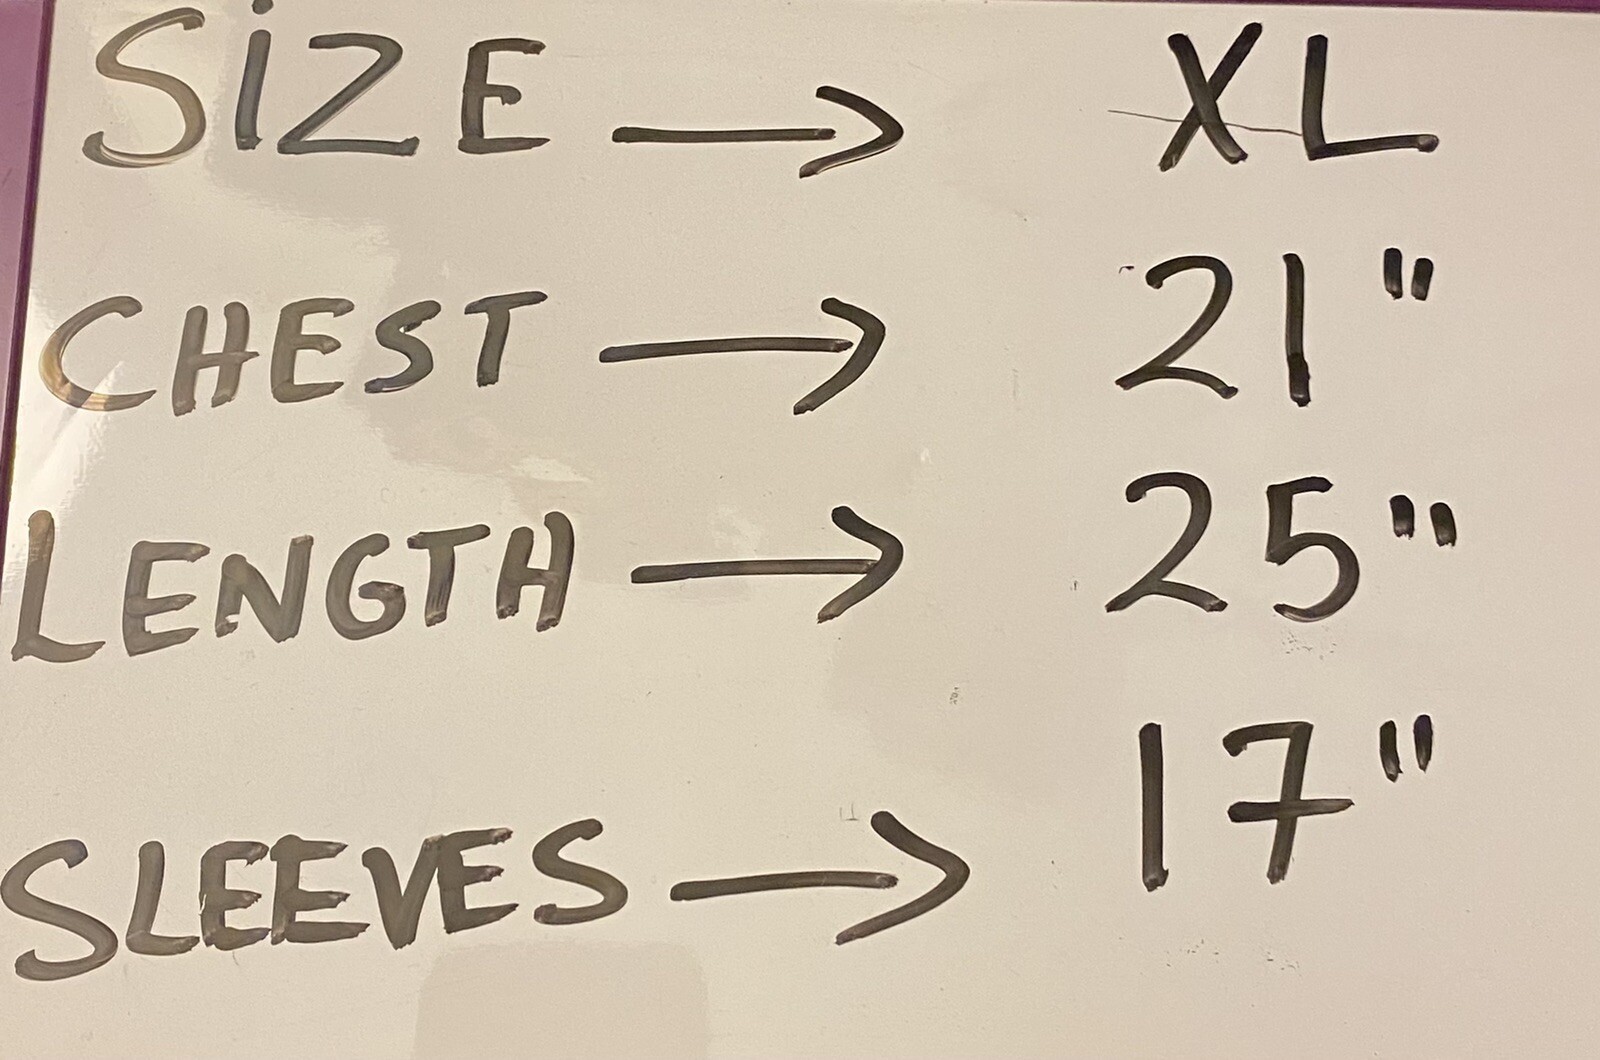 SiZE → XL
CHEST → 21"
LENGTH → 25"
SLEEVES → 17"